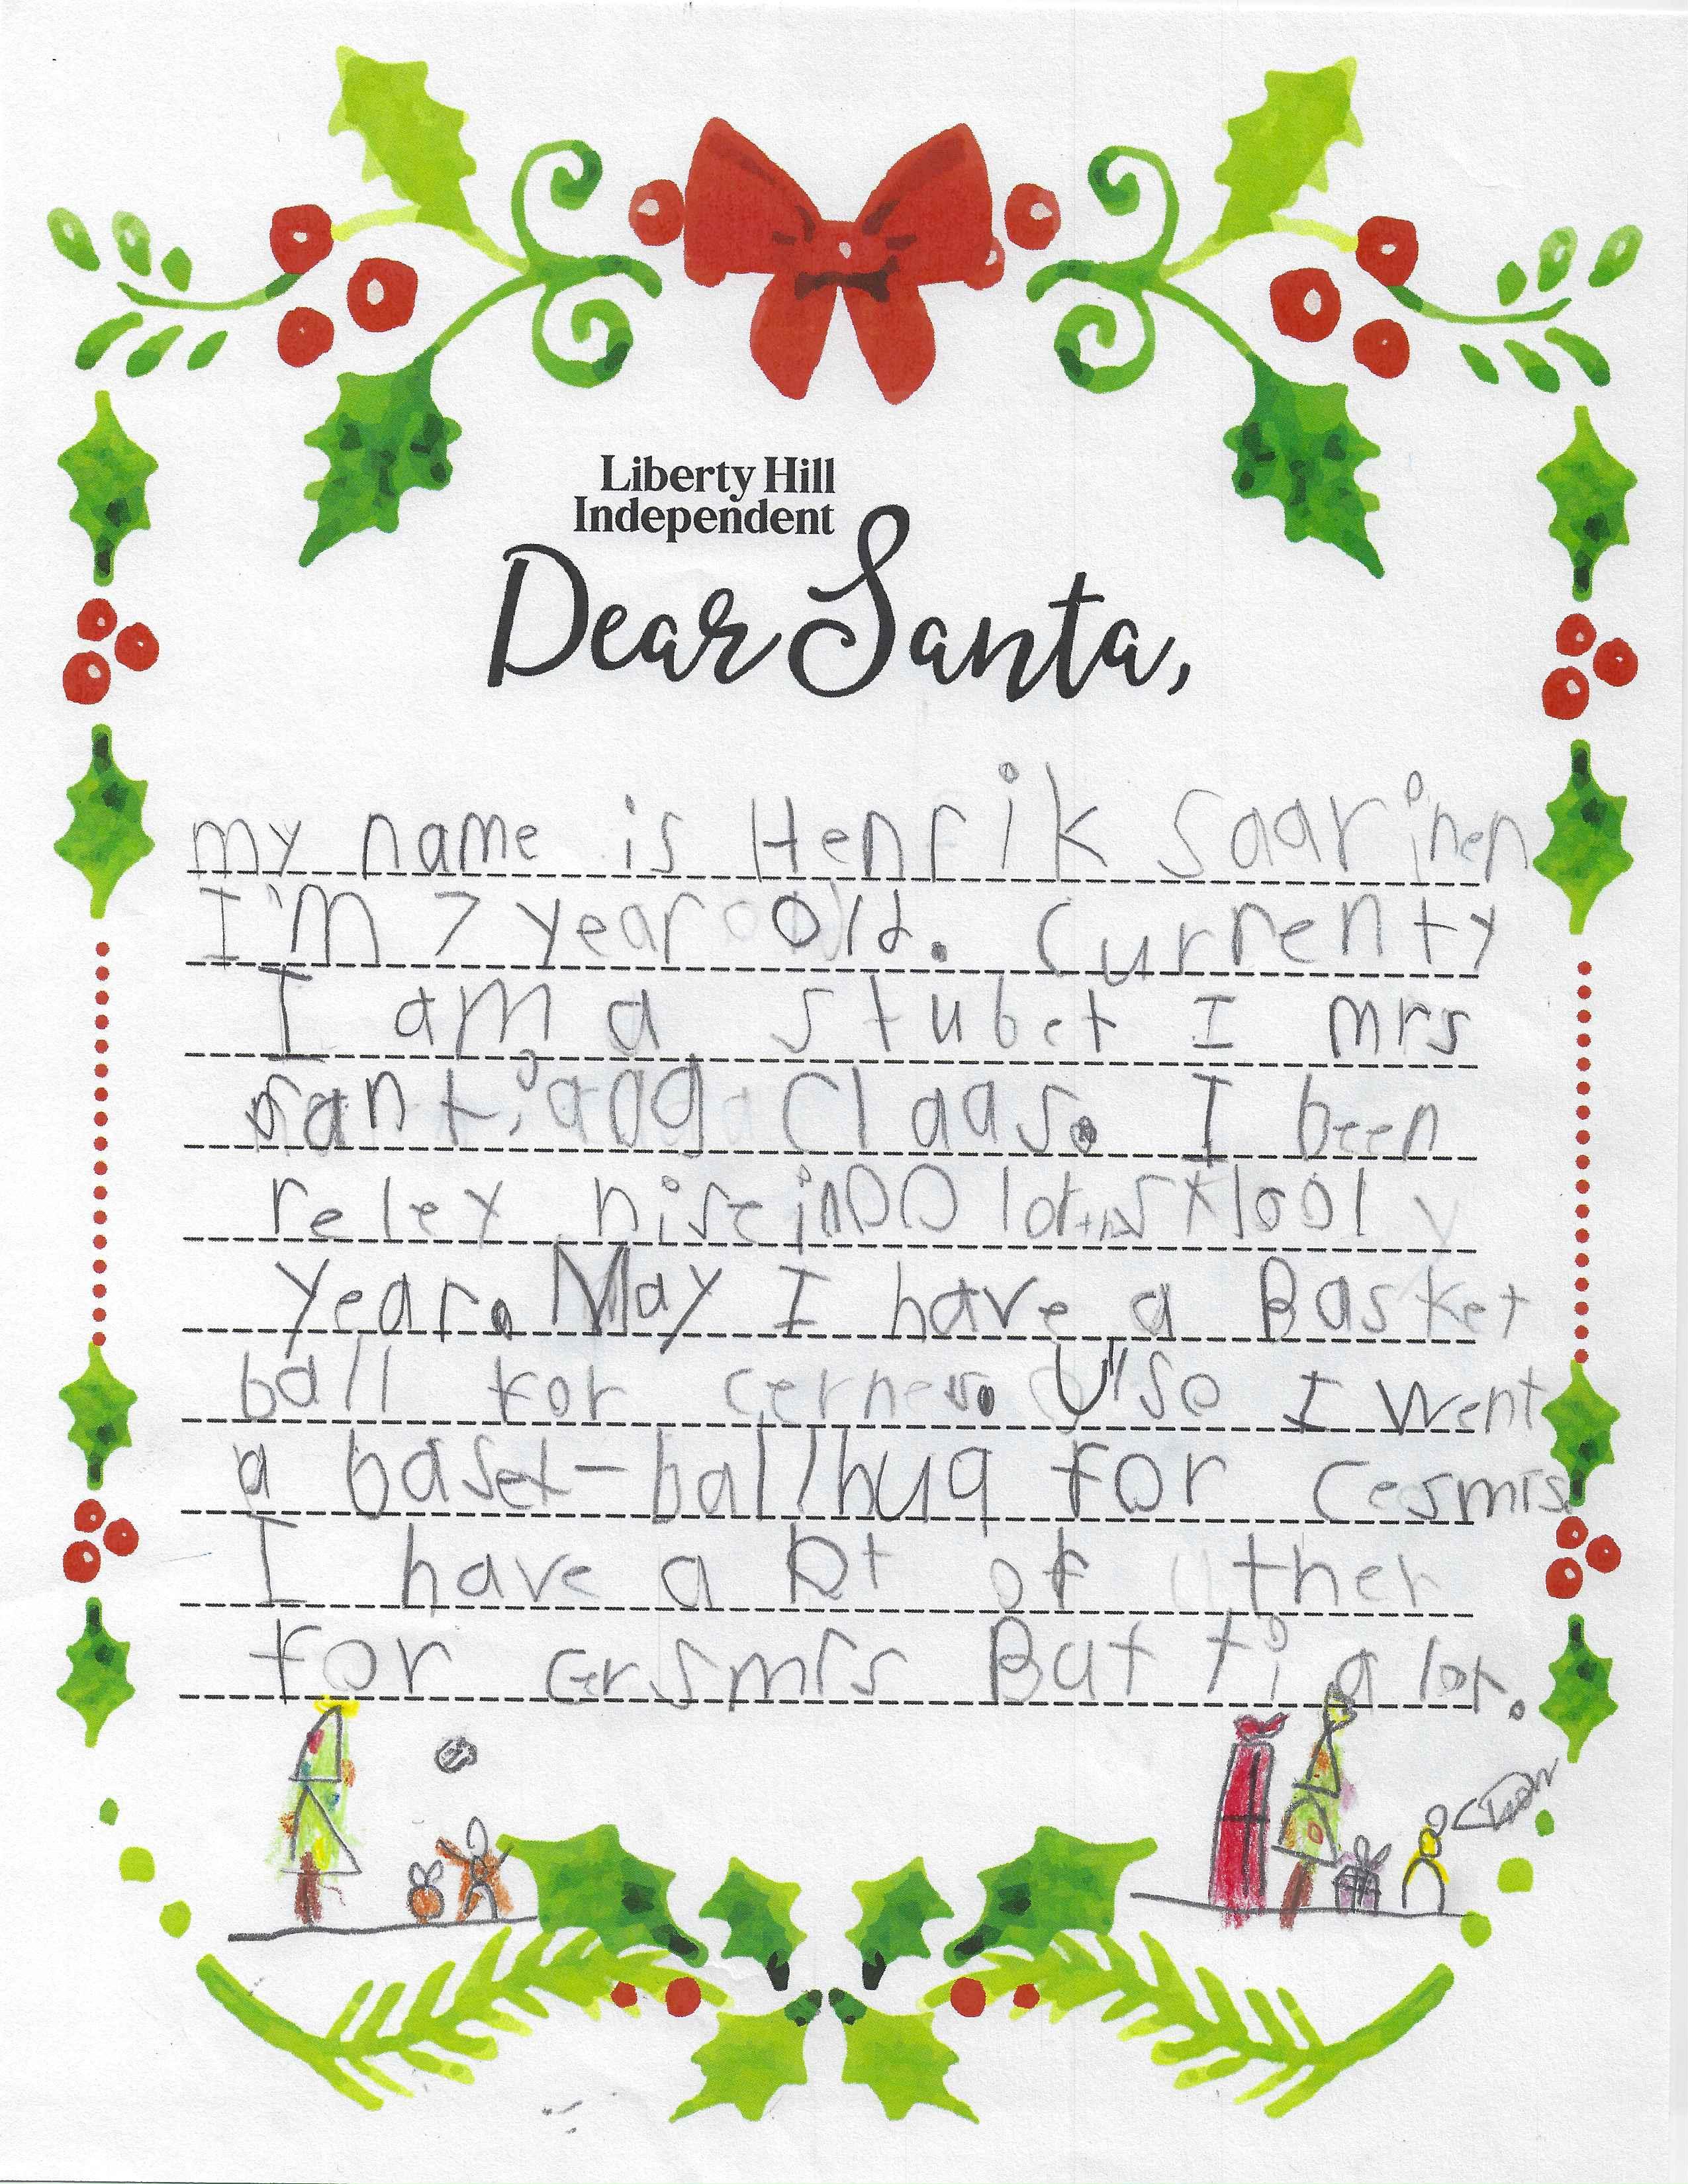 Liberty Hill
Independent
Dear Santa,
my name is Henrik Saarinen
I'm 7 year old. Currenty
I am a stubet I mrs
santiaga Claas. I been
reley nise in
year. May I have a Basket
ball for cernes. Ulso I went
a basket-ball huq for cesmis.
I have a lot of ther
for Grsmis But ti a lot.